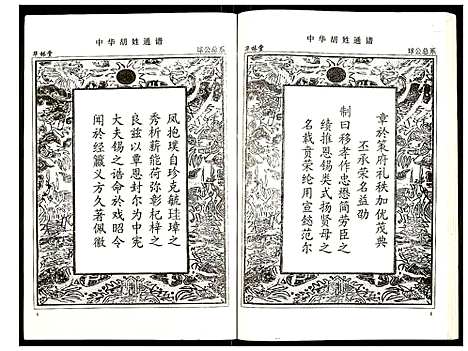 中华胡姓通谱
球公总系
章於策府礼秩加优茂典
丕承荣名益劭
制曰移孝作忠懋简劳臣之
绩推恩锡类式扬贤母之
名载贲荣纶用宣懿范尔
中华胡姓通谱
风抱璞自珍克毓珪璋之
秀析薪能荷弥彰杞梓之
良兹以覃恩封尔为中宪
大夫锡之诰命於戏昭令
闻於经籯义方久著佩徽